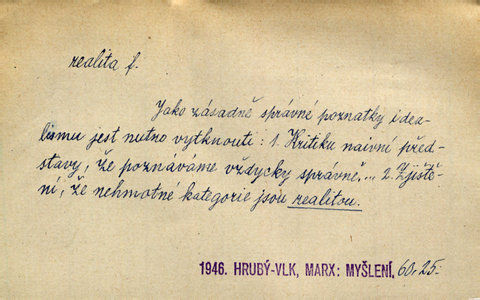 realita f.
Jako zásadně správné poznatky idea-
lismu jest nutno vytknouti: 1. Kritiku naivní před-
stavy, že poznáváme vždycky správně... 2. Zjiště-
ní, že nehmotné kategorie jsou realitou.
1946. HRUBÝ-VLK, MARX: MYŠLENÍ, 60, 25.